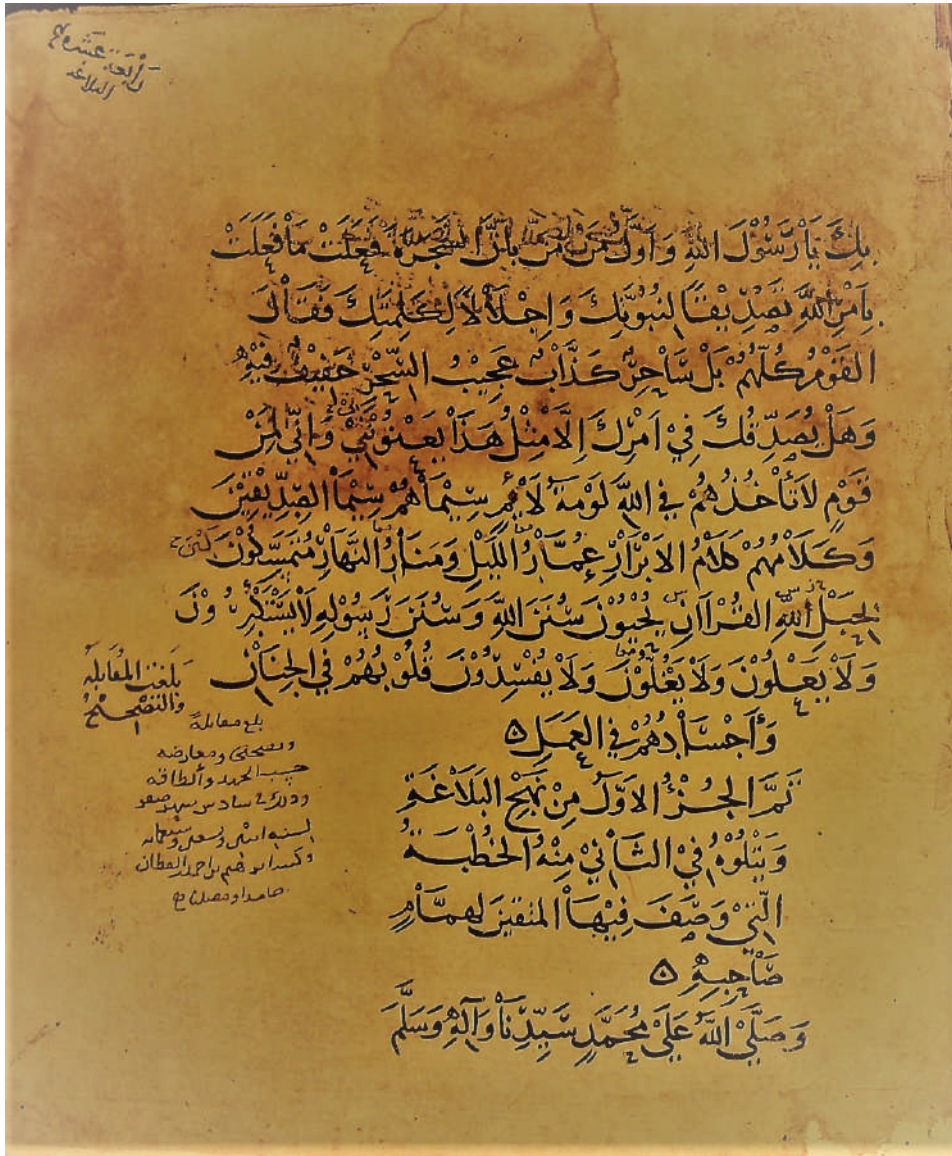 رابعة عشره
البلاغه
بِكَ يَا رَسُوْلَ اللهِ وَاَوَّلُ مَنْ اٰمَنَ بِاَنَّ الشَّجَرَةَ فَعَلَتْ مَا فَعَلَتْ
بِاَمْرِ اللهِ تَصْدِيْقًا لِنُبُوَّتِكَ وَاِجْلَالًا لِكَلِمَتِكَ فَقَالَ
القَوْمُ كُلُّهُمْ بَلْ سَاحِرٌ كَذَّابٌ عَجِيْبُ السِّحْرِ خَفِيْفٌ فِيْهِ
وَهَلْ يُصَدِّقُكَ فِيْ اَمْرِكَ اِلَّا مِثْلُ هَذَا يَعْنُوْنَنِيْ وَاِنِّيْ لَمِنْ
قَوْمٍ لَا تَأْخُذُهُمْ فِي اللهِ لَوْمَةُ لَائِمٍ سِيْمَاهُمْ سِيْمَا الصِّدِّيْقِيْنَ
وَكَلَامُهُمْ كَلَامُ الاَبْرَارِ عُمَّارُ اللَّيْلِ وَمَنَارُ النَّهَارِ مُتَمَسِّكُوْنَ
بِحَبْلِ اللهِ القُرْاٰنِ يُحْيُوْنَ سُنَنَ اللهِ وَسُنَنَ رَسُوْلِهِ لَا يَسْتَكْبِرُوْنَ
وَلَا يَعْلُوْنَ وَلَا يَغُلُّوْنَ وَلَا يُفْسِدُوْنَ قُلُوْبُهُمْ فِي الجِنَانِ
وَاَجْسَادُهُمْ فِي العَمَلِ ۵
تَمَّ الجُزْءُ الاَوَّلُ مِنْ نَهْجِ البَلَاغَةِ
وَيَتْلُوْهُ فِيْ الثَّانِيْ مِنْهُ الخُطْبَةُ
الَّتِيْ وَصَفَ فِيْهَا المتقينَ لِهَمَّامٍ
صَاحِبِهِ ۵
وَصَلَّى اللهُ عَلَى مُحَمَّدٍ سَيِّدِنَا وَآلِهِ وَسَلَّمَ
بَلَغَت المُقَابَلَه
وَالتَصْحِيْحُ
بلغ مقابلةً
وتصحيحًا ومعارضه
حسب الجهد والطاقه
وذلك في سادس شهر صفر
لسنه اثنى وسبعمائه
وكتب ابراهيم بن احمد القطان
حامدا ومصليا